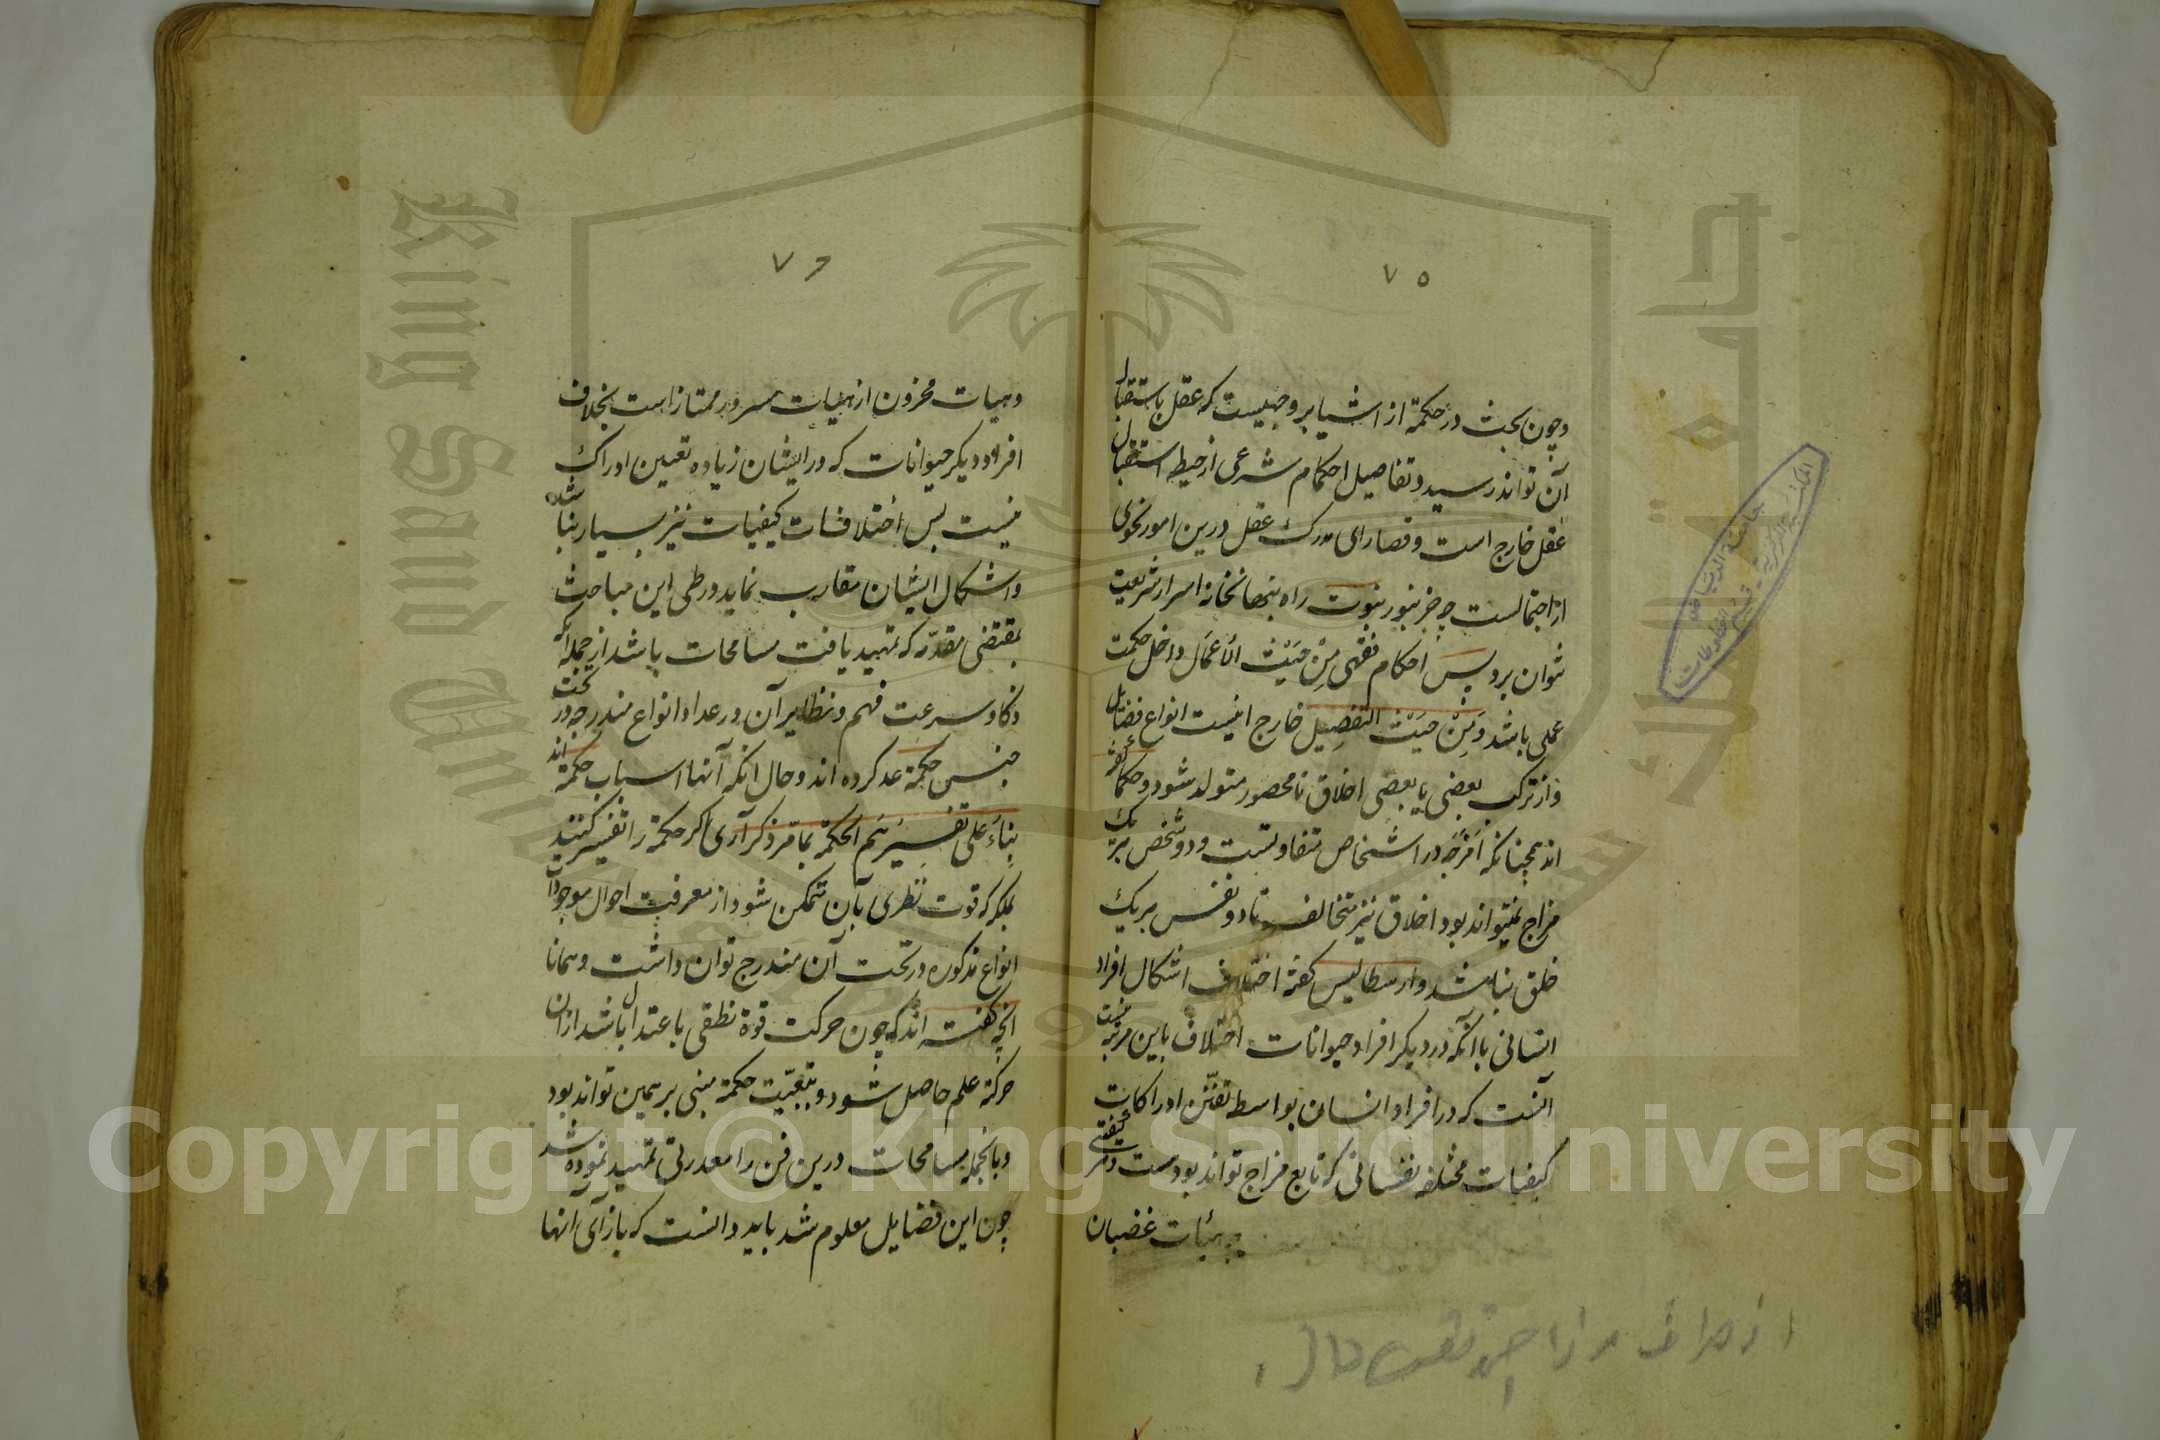 ٧٥
وچون بحث در حکمة از اشیا بر وجهیست که عقل باستقلال
آن تواند رسید و تفاصیل احکام شرعی از حیطه استقلال
عقل خارج است و قصارای مدرک عقل درین امور نحوی
از اجتمالست چه جز بنور نبوت راه بنهانخانه اسرار شریعت
نتوان برد پس احکام فقهی مِنْ حَیْث الأعمَال داخل حکمت
عملی باشد وَمِنْ حَیْث التفصِیل خارج اینست انواع فضائل
و از ترکب بعضی با بعضی اخلاق نامحصور متولد شود و حکما گفته
اند همچنانکه امزجه در اشخاص متفاوتست و دو شخص بر یک
مزاج نمیتواند بود اخلاق نیز متخالف و دو نفس بر یک
خلق نباشد و ارسطاطالیس گفته اختلاف اشکال افراد
انسانی با آنکه در دیگر افراد حیوانات اختلاف باین مرتبه نیست
آنست که در افراد انسان بواسطه تفنّن ادراکات
کیفیات مختلفه نفسانی که تابع مزاج تواند بود هست و هر کیفیتی
هیئات غضبان
٧٦
و هیات محزون از هیات مسرور ممتاز است بخلاف
افراد دیگر حیوانات که در ایشان زیاده تعین ادراک
نیست پس اختلافات کیفیات نیز بسیار نباشد
و اشکال ایشان متقارب نماید و در طی این مباحث
بمقتضی مقدّمه که تمهید یافت مسامحات باشد از جمله آنکه
ذکا و سرعت فهم و نظایر آن در عداد انواع مندرجه در تحت
جنس حکمة عد کرده اند و حال انکه آنها اسباب حکمة اند
بناءً علی تفسِیْرهَم الحکمَة بما مرّ ذکر آری اگر حکمة را تفسیر کنند
بملکه که قوت نظری بآن متمکن شود از معرفت احوال موجودات
انواع مذکوره در تحت آن مندرج توان داشت و همانا
انچه گفته اند که چون حرکت قوة نطقی باعتدال باشد از ان
حرکة علم حاصل شود و بتبعیّت حکمة مبنی بر همین تواند بود
و بالجمله مسامحات درین فن را معذرتی تمهید نموده شد
چون این فضایل معلوم شد باید دانست که بازآی انها
جامعة الرياض
Copyright © King Saud University
King Saud University
جامعة الملك سعود